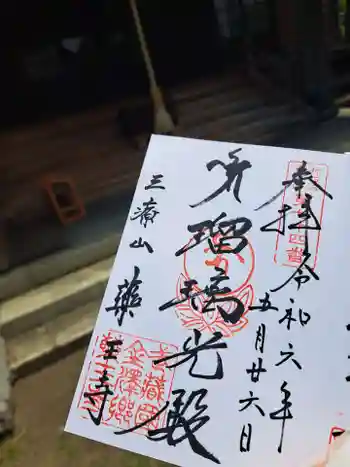 奉拝
令和六年
五月廿六日
瑠璃光殿
三療山
薬王寺
金澤郷